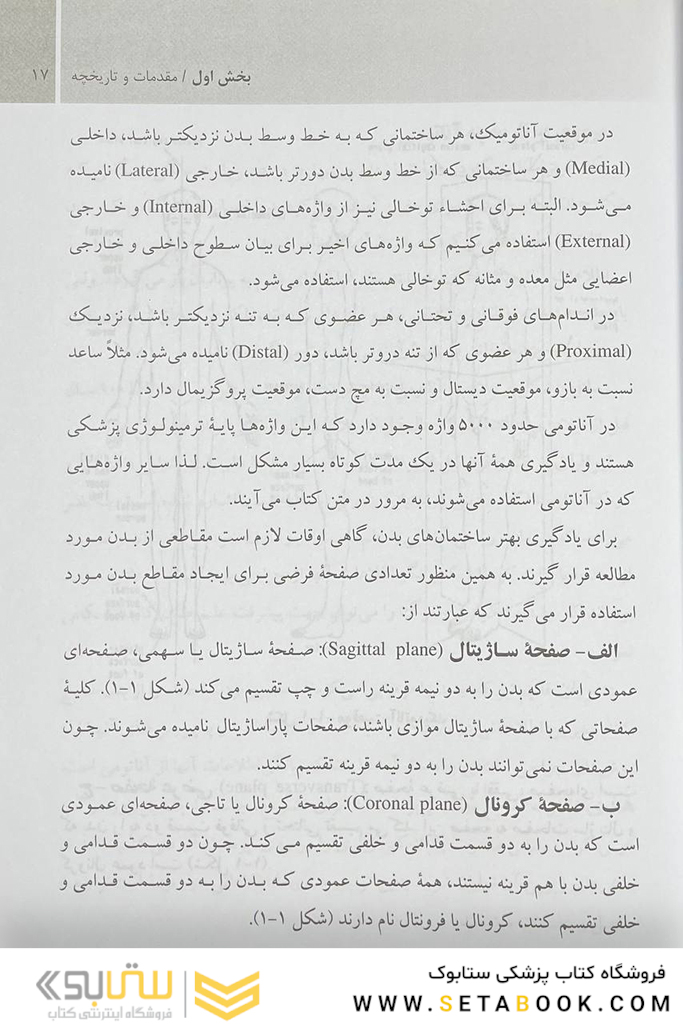 بخش اول / مقدمات و تاریخچه ۱۷
در موقعیت آناتومیک، هر ساختمانی که به خط وسط بدن نزدیکتر باشد، داخلی
(Medial) و هر ساختمانی که از خط وسط بدن دورتر باشد، خارجی (Lateral) نامیده
می‌شود. البته برای احشاء توخالی نیز از واژه‌های داخلی (Internal) و خارجی
(External) استفاده می‌کنیم که واژه‌های اخیر برای بیان سطوح داخلی و خارجی
اعضایی مثل معده و مثانه که توخالی هستند، استفاده می‌شود.
در اندام‌های فوقانی و تحتانی، هر عضوی که به تنه نزدیکتر باشد، نزدیک
(Proximal) و هر عضوی که از تنه دروتر باشد، دور (Distal) نامیده می‌شود. مثلاً ساعد
نسبت به بازو، موقعیت دیستال و نسبت به مچ دست، موقعیت پروگزیمال دارد.
در آناتومی حدود ۵۰۰۰ واژه وجود دارد که این واژه‌ها پایهٔ ترمینولوژی پزشکی
هستند و یادگیری همهٔ آنها در یک مدت کوتاه بسیار مشکل است. لذا سایر واژه‌هایی
که در آناتومی استفاده می‌شوند، به مرور در متن کتاب می‌آیند.
برای یادگیری بهتر ساختمان‌های بدن، گاهی اوقات لازم است مقاطعی از بدن مورد
مطالعه قرار گیرند. به همین منظور تعدادی صفحهٔ فرضی برای ایجاد مقاطع بدن مورد
استفاده قرار می‌گیرند که عبارتند از:
الف- صفحهٔ ساژیتال (Sagittal plane): صفحهٔ ساژیتال یا سهمی، صفحه‌ای
عمودی است که بدن را به دو نیمه قرینه راست و چپ تقسیم می‌کند (شکل ۱-۱). کلیهٔ
صفحاتی که با صفحهٔ ساژیتال موازی باشند، صفحات پاراساژیتال نامیده می‌شوند. چون
این صفحات نمی‌توانند بدن را به دو نیمه قرینه تقسیم کنند.
ب- صفحهٔ کرونال (Coronal plane): صفحهٔ کرونال یا تاجی، صفحه‌ای عمودی
است که بدن را به دو قسمت قدامی و خلفی تقسیم می‌کند. چون دو قسمت قدامی و
خلفی بدن با هم قرینه نیستند، همهٔ صفحات عمودی که بدن را به دو قسمت قدامی و
خلفی تقسیم کنند، کرونال یا فرونتال نام دارند (شکل ۱-۱).
فروشگاه کتاب پزشکی ستابوک
WWW.SETABOOK.COM
ستابوک
فروشگاه اینترنتی کتاب